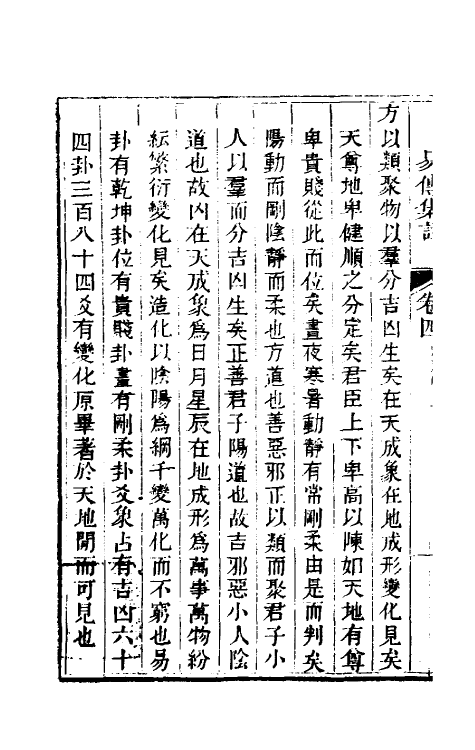 易傳集說
卷四
方以類聚物以羣分吉凶生矣在天成象在地成形變化見矣
天尊地卑健順之分定矣君臣上下卑高以陳如天地有尊
卑貴賤從此而位矣晝夜寒暑動靜有常剛柔由是而判矣
陽動而剛陰靜而柔也方道也善惡邪正以類而聚君子小
人以羣而分吉凶生矣正善君子陽道也故吉邪惡小人陰
道也故凶在天成象爲日月星辰在地成形爲萬事萬物紛
紜繁衍變化見矣造化以陰陽爲綱千變萬化而不窮也易
卦有乾坤卦位有貴賤卦畫有剛柔卦爻象占有吉凶六十
四卦三百八十四爻有變化原畢著於天地開而可見也